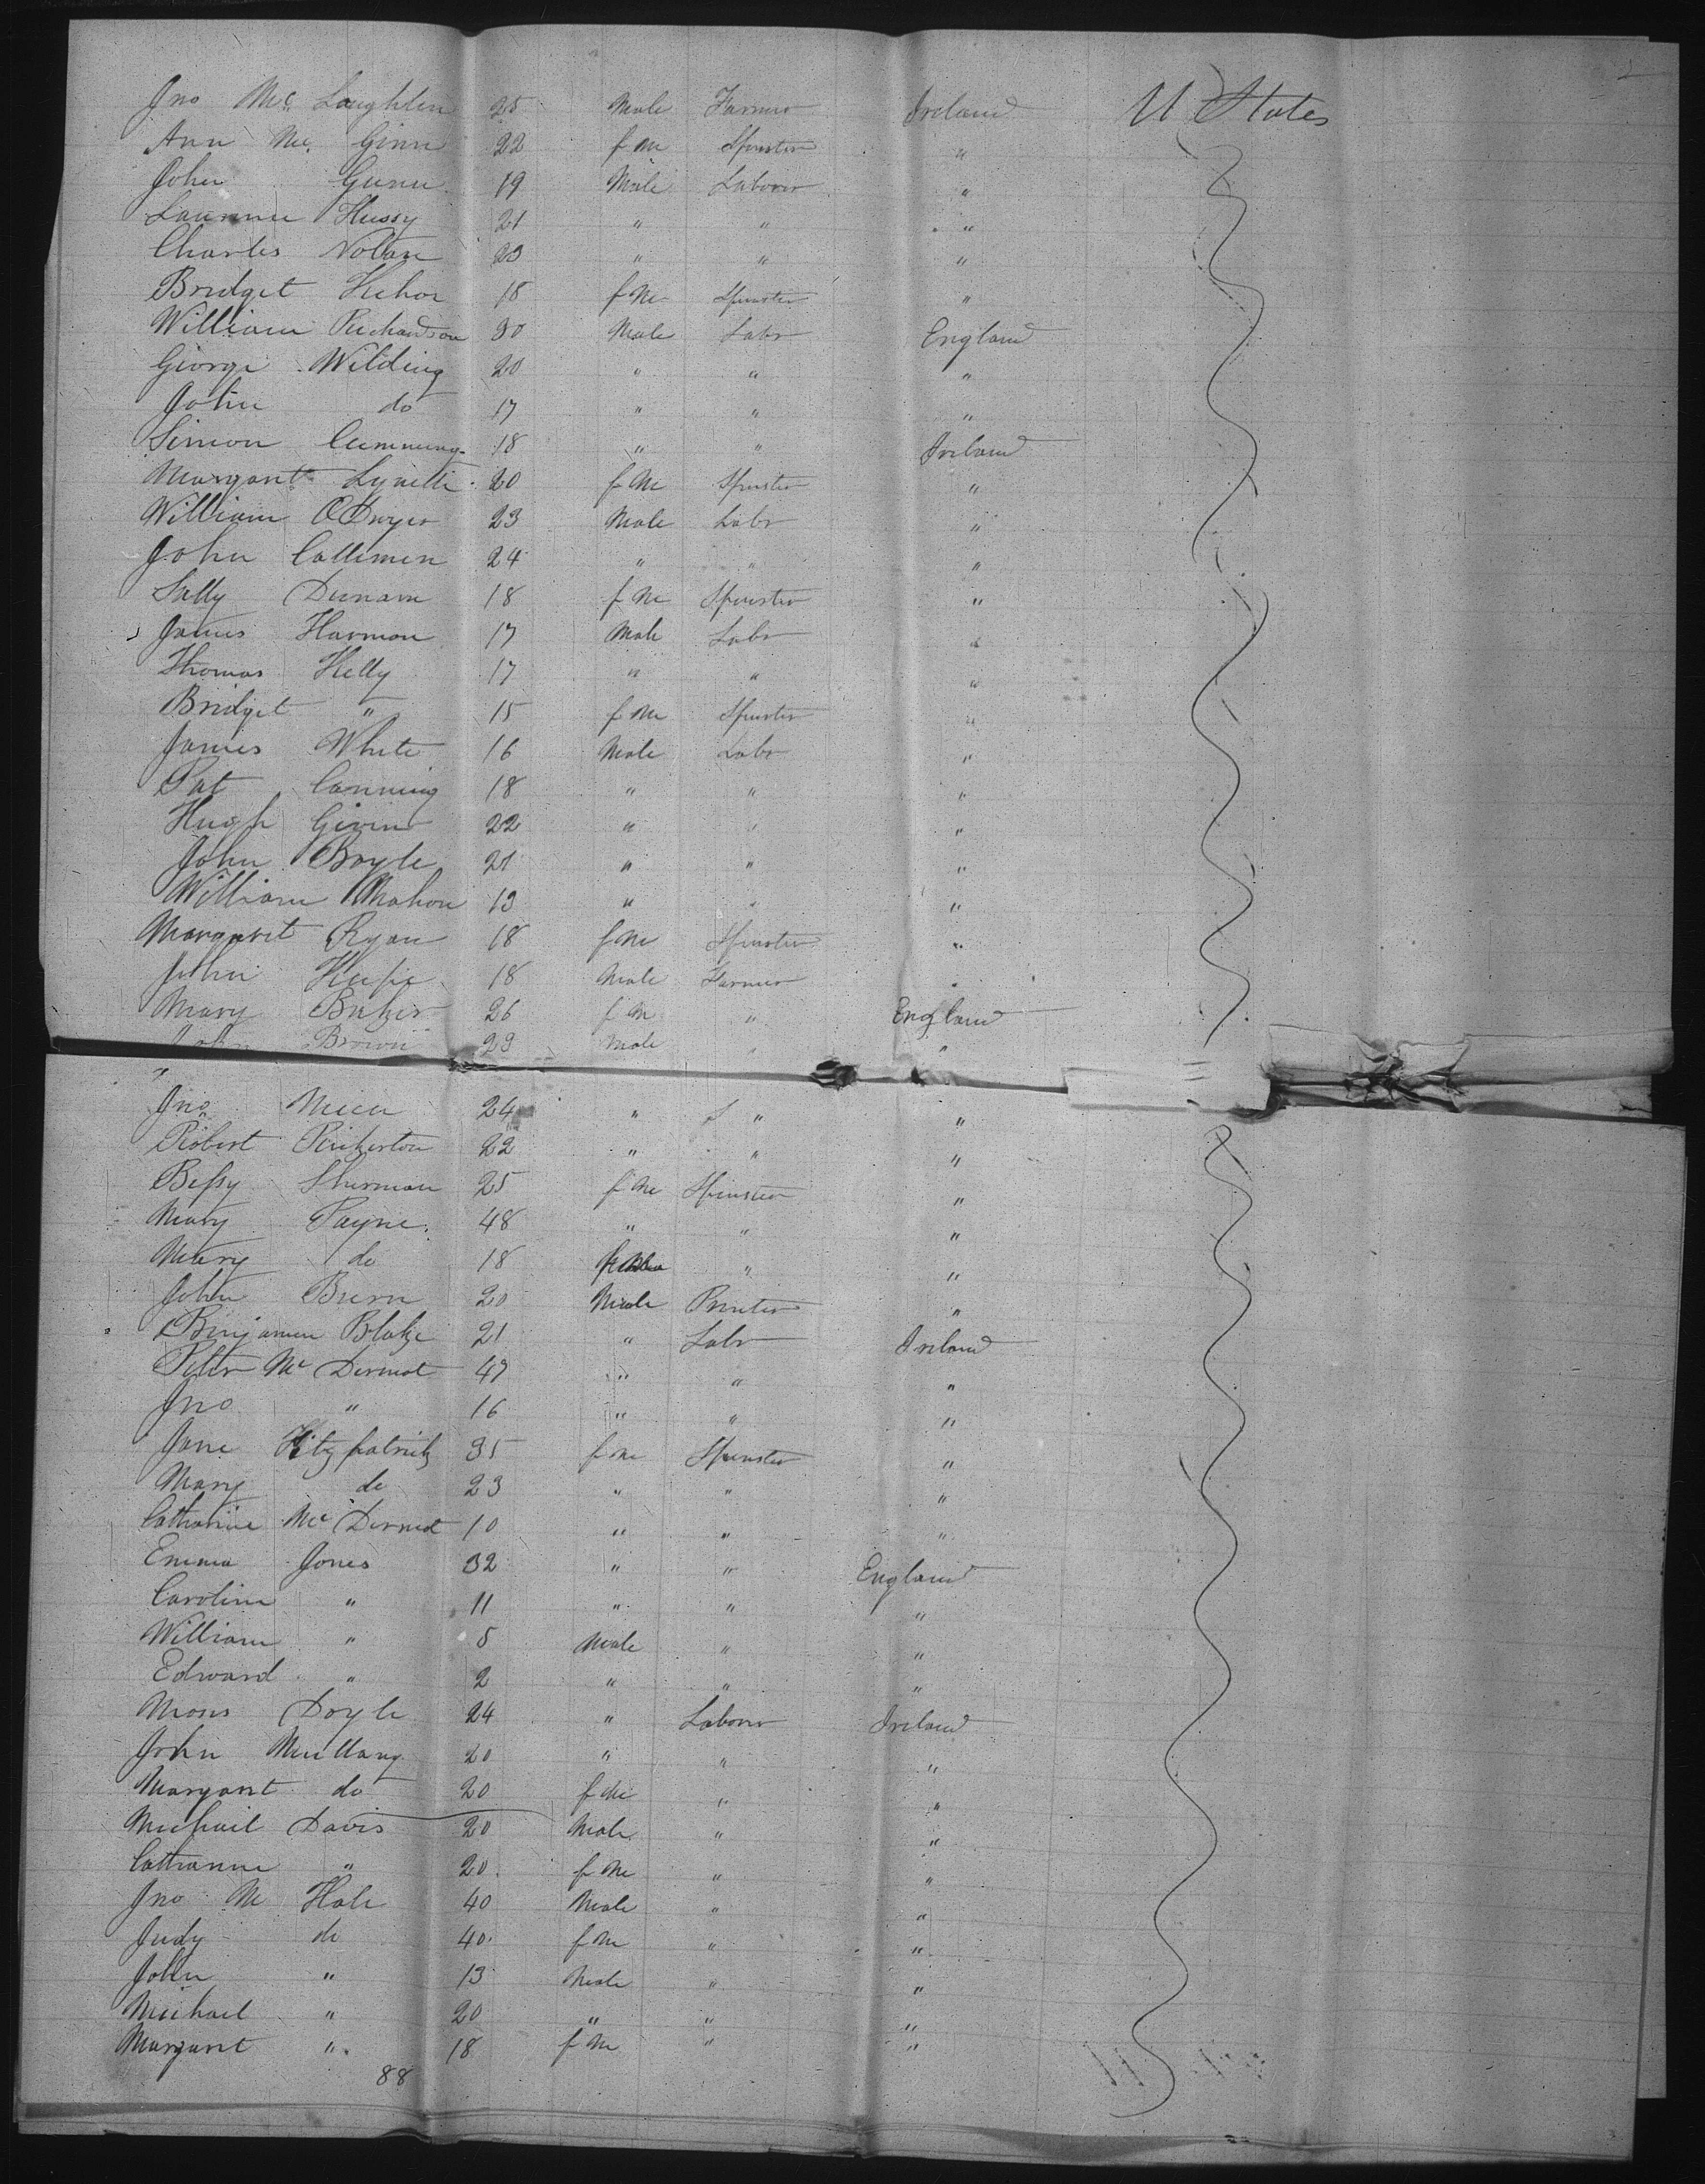 Jno Mc Laughlin 25 Male Farmer Ireland U States
Ann Mc Ginn 22 f Me Spinster "
John Gunn 19 Male Labour "
Laurence Hussy 21 " " "
Charles Nolan 23 " " "
Bridget Kehoe 18 f Me Spinster "
William Richardson 30 Male Labr England
George Wilding 20 " " "
John do 17 " " "
Simon Cummings 18 " " Ireland
Margaret 20 f Me Spinster "
William O Dwyer 23 Male Labr "
John 24 " " "
Sally 18 f Me Spinster "
James Harmon 17 Male Labr "
Thomas Kelly 17 " " "
Bridget " 15 f Me Spinster "
James White 16 Male Labr "
Pat Canning 18 " " "
Hugh 22 " " "
John Boyle 21 " " "
William Mahon 13 " " "
Margaret Ryan 18 f Me Spinster "
John 18 Male Farmer "
Mary Baker 26 f Me " England
John Brown 23 Male " "
Jno 24 " " "
Robert Pinkerton 22 " " "
Bessy Sherman 25 f Me Spinster "
Mary Payne 48 " " "
Mary do 18 "
John 20 Male Printer "
Benjamin Blake 21 " Labr Ireland
Peter Mc Dermot 47 " " "
Jno " 16 " " "
Jane Fitzpatrick 35 f Me Spinster "
Mary do 23 " " "
Catharine Mc Dermot 10 " " "
Emma Jones 32 " " England
Caroline " 11 " " "
William " 5 Male " "
Edward " 2 " " "
Doyle 24 " Labour Ireland
John Mullany 20 " " "
Margaret do 20 f Me " "
Michael Davis 20 Male " "
Catharine " 20 f Me " "
Jno Mc Hale 40 Male " "
Judy do 40 f Me " "
John " 13 Male " "
Michael " 20 " " "
Margaret " 18 f Me " "
88